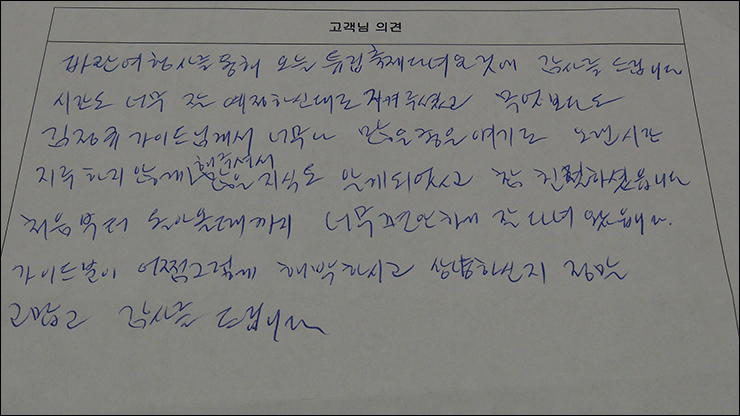 고객님 의견
파란여행사를 통해 오늘 튜립축제 다녀온것에 감사를 드립니다
시간도 너무 잘 예정하신대로 지켜주셨고 무엇보다도
김정규 가이드님께서 너무나 많은 정을 얘기로 오랜시간
지루하지 않게 해주셔서 많은 지식도 알게되었고 참 친절하셨읍니다
처음부터 돌아올때까지 너무 편안하게 잘 다녀 왔읍니다.
가이드분이 어쩜그렇게 해박하시고 상냥하신지 정말
고맙고 감사를 드립니다